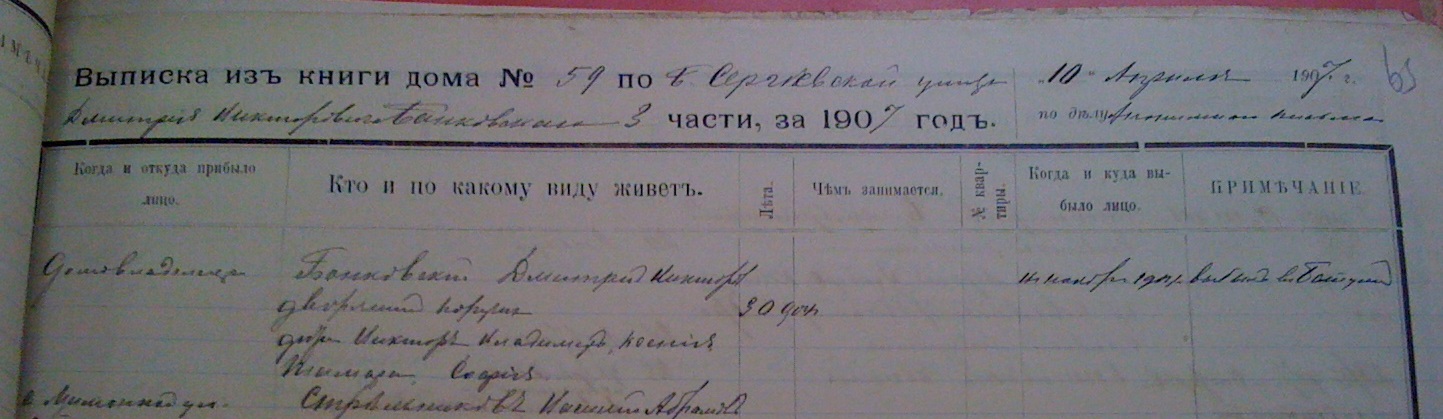 Выписка изъ книги дома № 59 по Б. Сергѣевской улицѣ
Дмитрія Викторовича Банковскаго 3 части, за 1907 годъ.
„10" Апрѣля 1907 г.
по дѣлу
63
Когда и откуда прибыло лицо.
Кто и по какому виду живетъ.
Лѣта.
Чѣмъ занимается.
№ квартиры.
Когда и куда выбыло лицо.
ПРИМѢЧАНІЕ.
Домовладелец
Банковскій Дмитрій Виктор
14 ноября 1904
дворянин поручик
30
дѣти Викторъ Владимиръ, Ксенія,
Тамара, Софія
Стрѣльниковъ Василій Абрамов